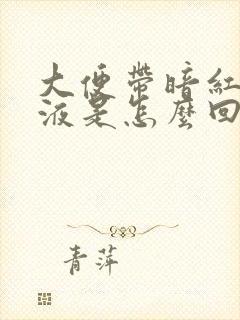 大便带暗红
液是怎麽回
青萍